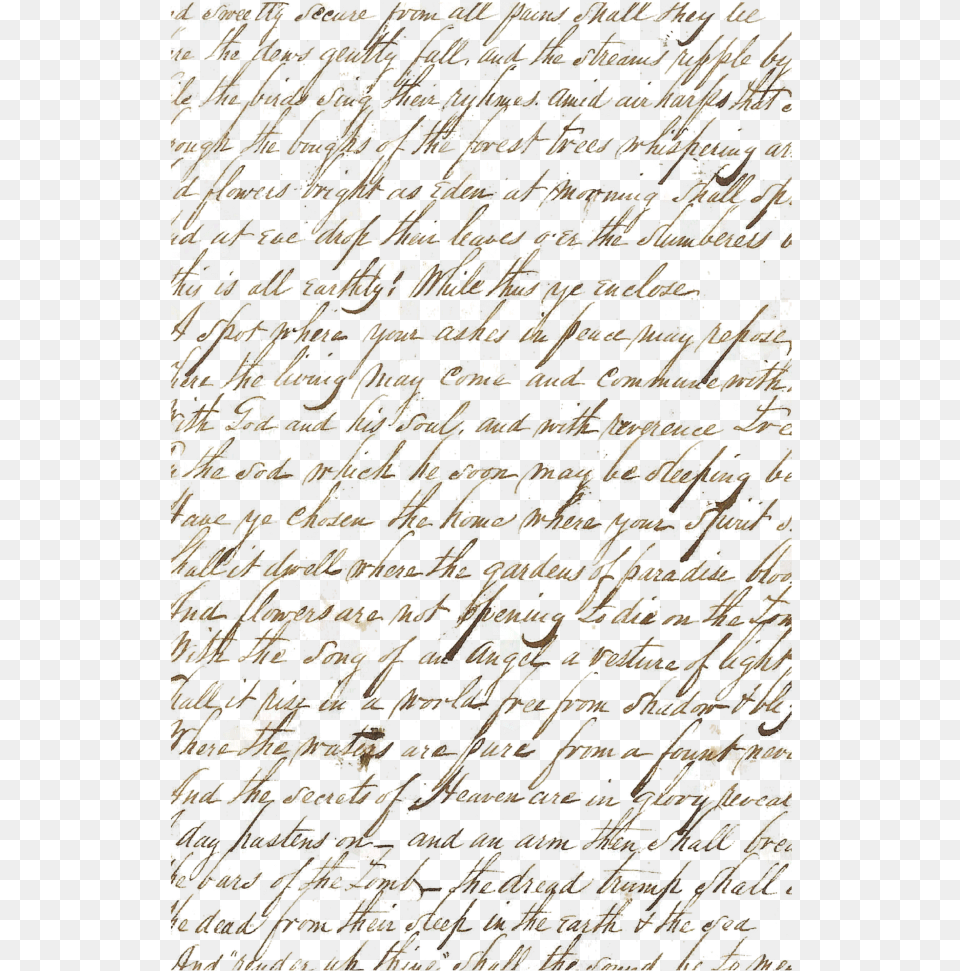 d sweetly secure from all pains shall they lie
re the dews gently fall, and the streams ripple by
le the birds sing their ryhmes. amid air harps that
ough the boughs of the forest trees whispering ar
d flowers bright as Eden at morning shall sp
nd at eve drop their leaves o'er the slumberers
this is all earthly! While thus ye enclose
A spot where your ashes in peace may repose,
here the living may come and commune with
With God and his soul, and with reverence tre
the sod which he soon may be sleeping be
Have ye chosen the home where your spirit s
Shall it dwell where the gardens of paradise bloo
And flowers are not opening to die on the tom
With the song of an angel a vesture of light
hall it rise in a world free from shadow & bli
Where the waters are pure from a fount nev
And the secrets of Heaven are in glory reveal
day hastens on — and an arm then shall brea
he bars of the tomb — the dread trump shall
he dead from their sleep in the earth & the sea
And "render up thine" shall the sound be to me